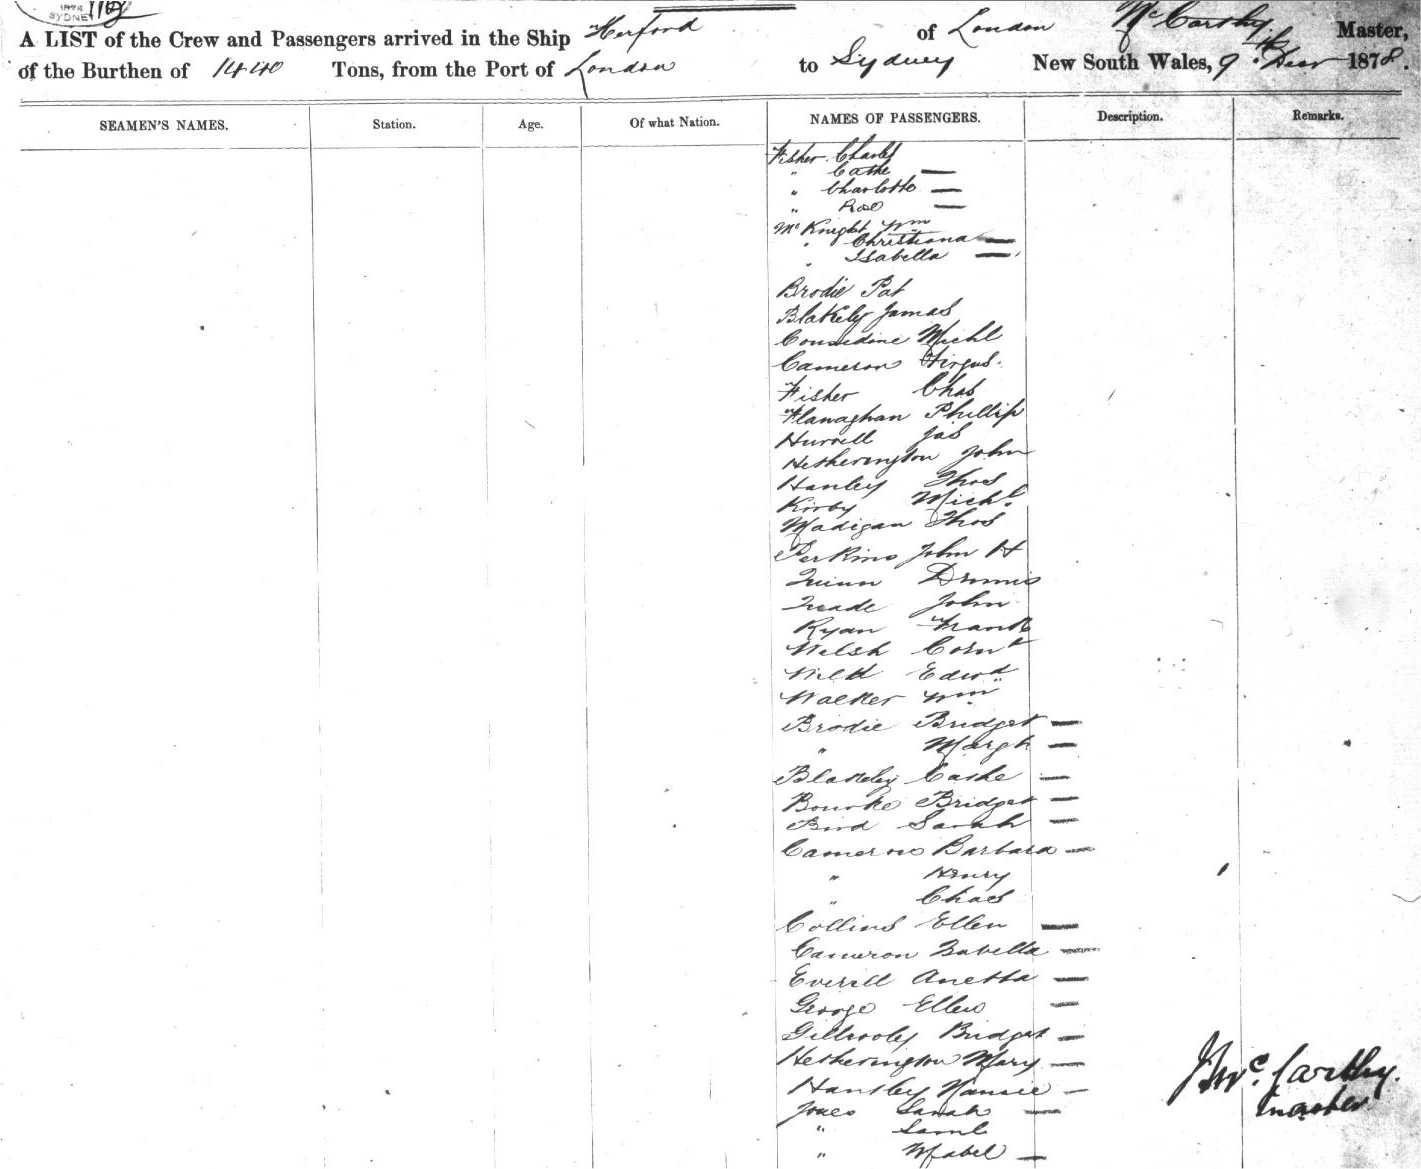 SYDNEY
A LIST of the Crew and Passengers arrived in the Ship Herford of London McCarthy Master,
of the Burthen of 1440 Tons, from the Port of London to Sydney New South Wales, 9 1878.
SEAMEN'S NAMES. Station. Age. Of what Nation. NAMES OF PASSENGERS. Description. Remarks.
Fisher Charles
" Cathe —
" Charlotte —
" Rose —
McKnight Wm
" Christiana —
" Isabella —
Brodie Pat
Blakeley James
Considine Michl
Cameron Fergus
Fisher Chas
Flanaghan Phillip
Hurrell Jas
Hetherington John
Hanley Thos
Kirby Michl
Madigan Thos
Perkins John H
Quinn Dennis
John
Ryan Frank
Welsh Corns
Edwd
Walker Wm
Brodie Bridget —
" Margt —
Blakeley Cathe —
Bourke Bridget —
Bird Sarah —
Cameron Barbara —
" Henry
" Chas
Collins Ellen —
Cameron Isabella —
Everell Anetta —
George Ellen —
Gillooly Bridget —
Hetherington Mary —
Hantley Nannie —
Jones Sarah —
" Saml
" Mabel —
J McCarthy
master